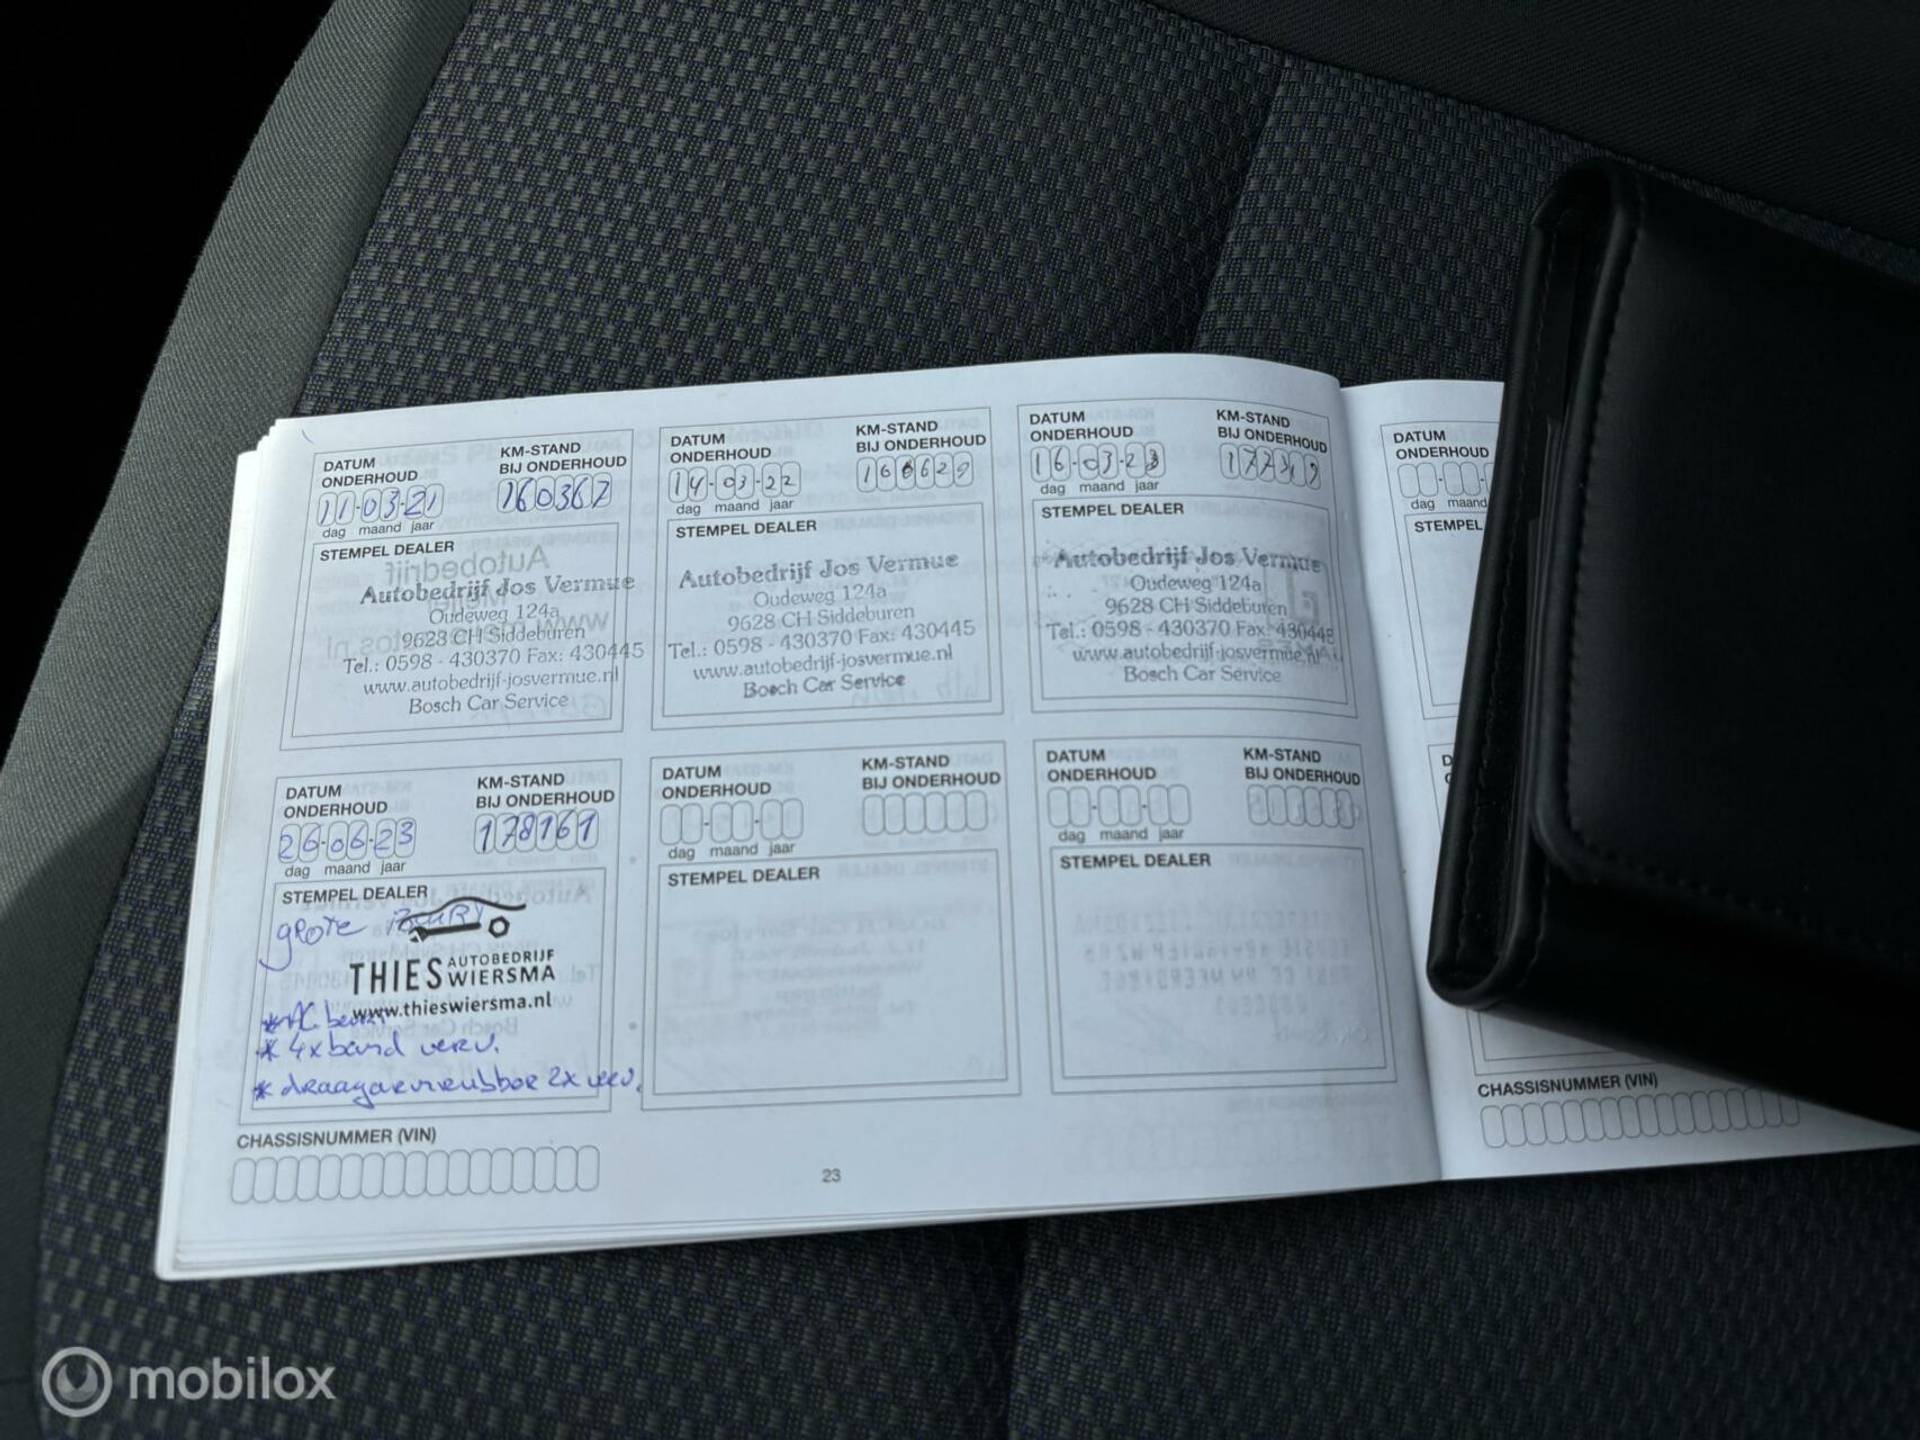 DATUM
ONDERHOUD
KM-STAND
BIJ ONDERHOUD
11-03-21
160367
dag maand jaar
STEMPEL DEALER
Autobedrijf Jos Vermue
Oudeweg 124a
9628 CH Siddeburen
Tel.: 0598 - 430370 Fax: 430445
www.autobedrijf-josvermue.nl
Bosch Car Service
DATUM
ONDERHOUD
KM-STAND
BIJ ONDERHOUD
14-03-22
168629
dag maand jaar
STEMPEL DEALER
Autobedrijf Jos Vermue
Oudeweg 124a
9628 CH Siddeburen
Tel.: 0598 - 430370 Fax: 430445
www.autobedrijf-josvermue.nl
Bosch Car Service
DATUM
ONDERHOUD
KM-STAND
BIJ ONDERHOUD
16-03-23
dag maand jaar
STEMPEL DEALER
Autobedrijf Jos Vermue
Oudeweg 124a
9628 CH Siddeburen
Tel.: 0598 - 430370 Fax: 430445
www.autobedrijf-josvermue.nl
Bosch Car Service
DATUM
ONDERHOUD
dag maand
STEMPEL
DATUM
ONDERHOUD
KM-STAND
BIJ ONDERHOUD
26-06-23
178161
dag maand jaar
STEMPEL DEALER
grote
THIES AUTOBEDRIJF WIERSMA
www.thieswiersma.nl
* AC
* 4x band verv.
* draagarmrubber 2x verv.
DATUM
ONDERHOUD
KM-STAND
BIJ ONDERHOUD
dag maand jaar
STEMPEL DEALER
DATUM
ONDERHOUD
KM-STAND
BIJ ONDERHOUD
dag maand jaar
STEMPEL DEALER
CHASSISNUMMER (VIN)
23
CHASSISNUMMER (VIN)
mobilox